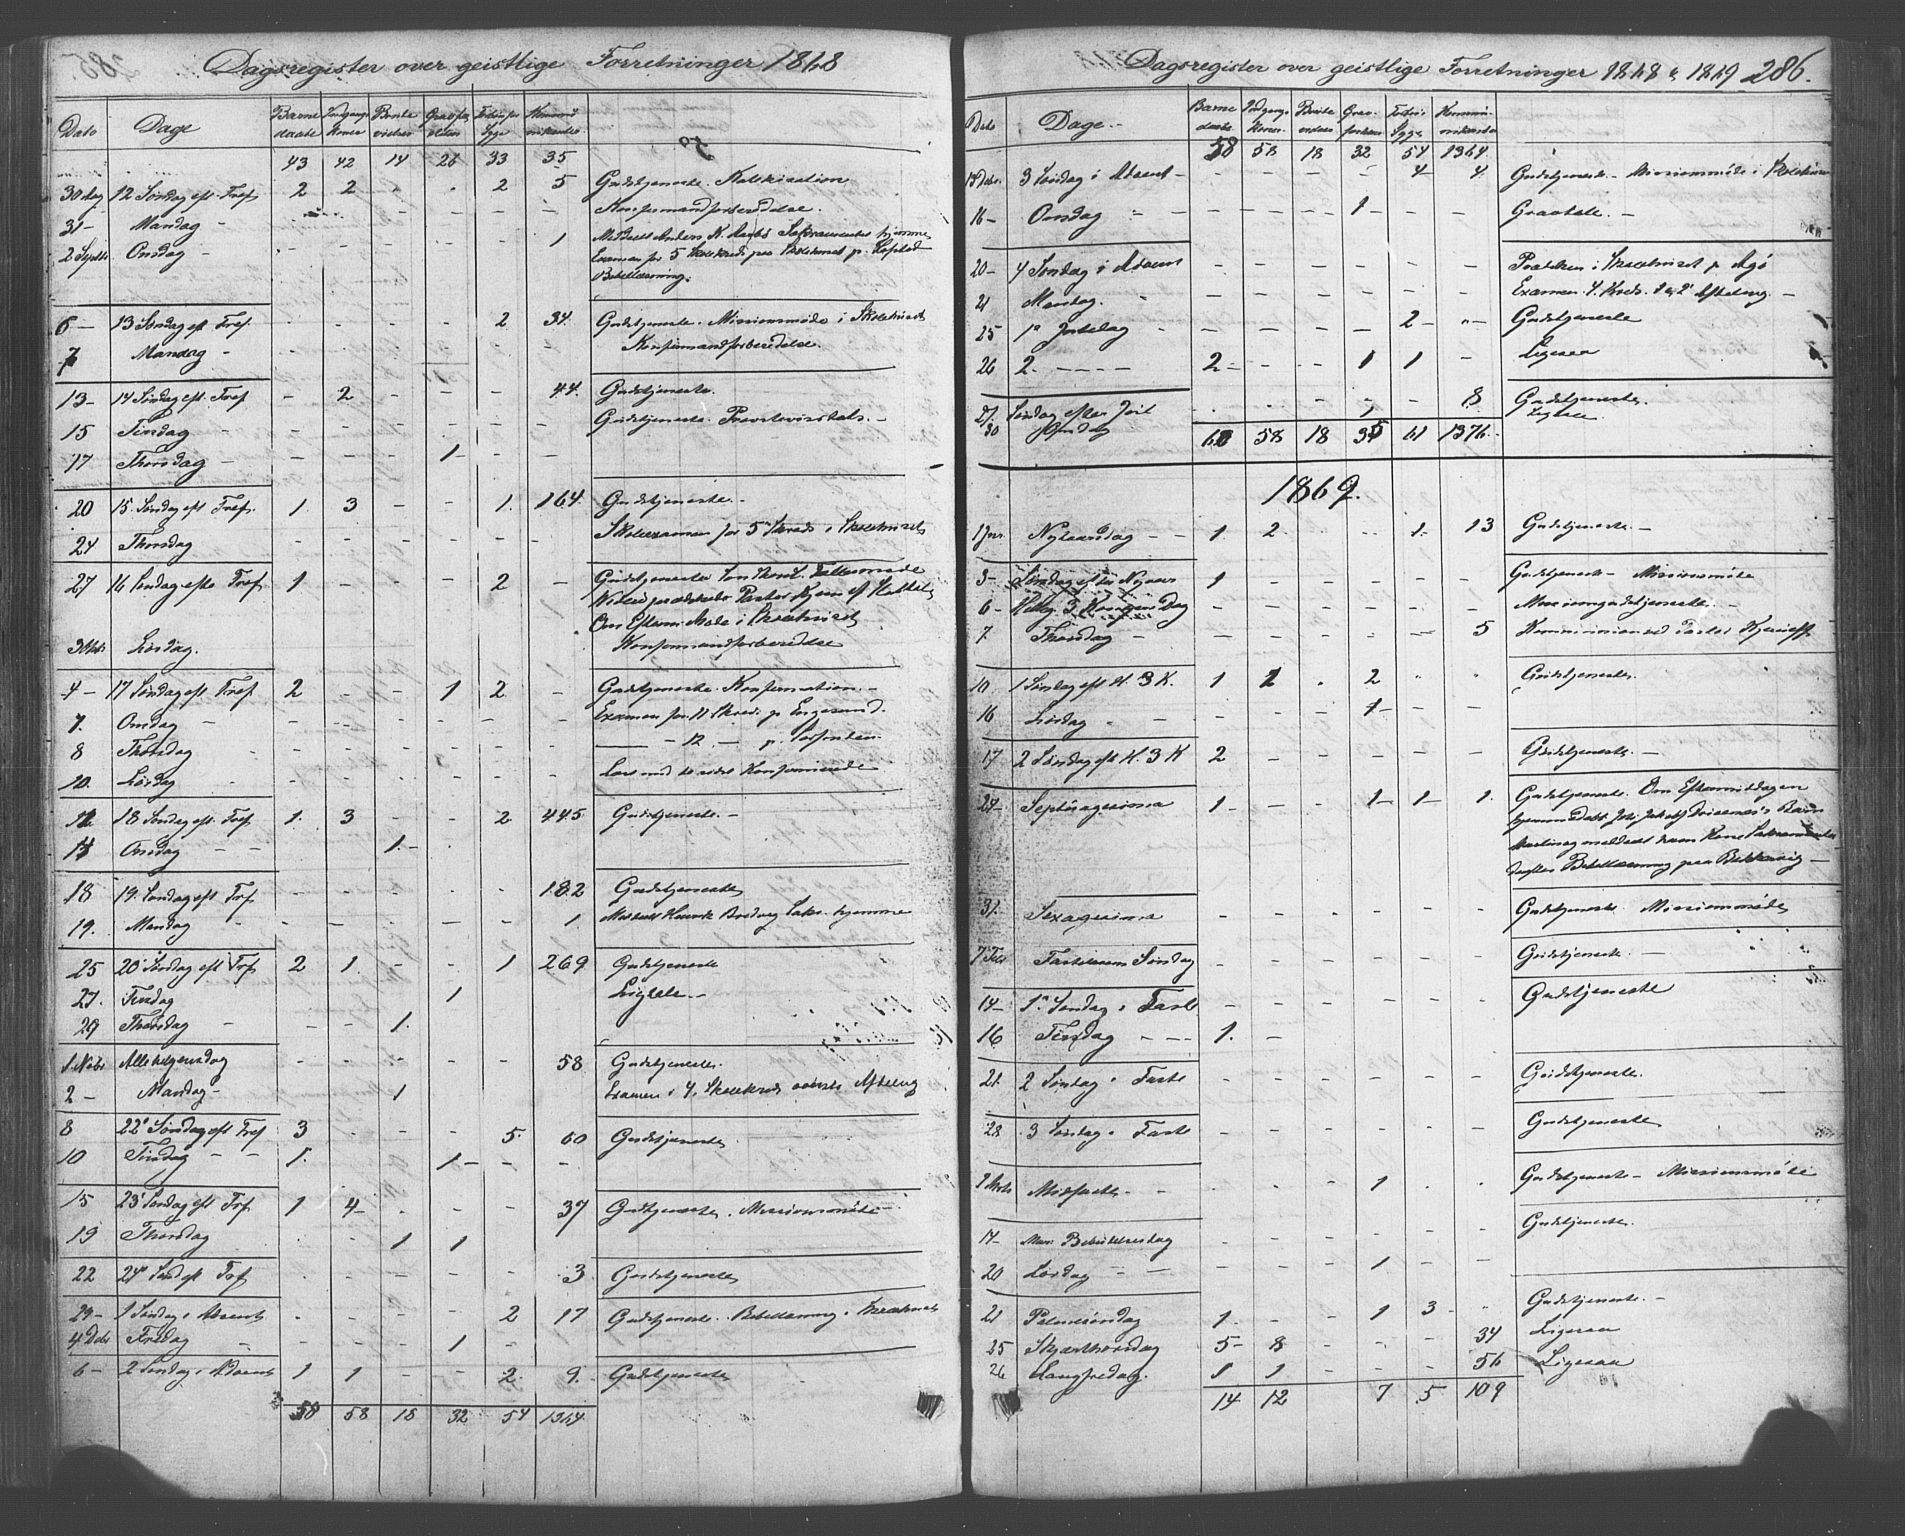 Dagsregister over geistlige Forretninger 1868
Dato Dage Barne daab Kommunikanter
43 42 14 26 33 35
30 Aug 12 Søndag eft Tref 2 2 - - 2 5 Gudstjeneste. Katekisation
31 - Mandag - - - - - - Konfirmandforberedelse.
2 Septbr Onsdag - - - - - 1 Meddelt Anders K. Sakramentet hjemme
Examen for 5 Skolekreds paa Skolehuset p.
Bibellæsning.
6 - 13 Søndag eft Tref. - - - - 2 34. Gudstjeneste. Missionsmøde i Skolehuset
7 Mandag - Konfirmandforberedelse.
13 - 14 Søndag eft. Tref - 2 - - - 44. Gudstjeneste.
15 Tirsdag - Gudstjeneste. Provstevisitats. -
17 Thorsdag - - - - 1 - - -
20 15. Søndag eft Tref. 1. 3 - - 1. 164. Gudstjeneste. -
24 Thorsdag - - - - - - Skoleexamen for 5 Kreds i Skolehuset
27 16 Søndag efter Tref. 1 - - - 2 - Gudstjeneste
prædikede Pastor
Om Efterm. Møde i Skolehuset
3 Oktbr Lørdag. Konfirmandforberedelse
4 - 17 Søndag eft. Tref 2 - - 1 2 - Gudstjeneste. Konfirmation. -
7. Onsdag - Examen for 11 Kreds p.
8 Thorsdag - 12 - p.
10. Lørdag - Konfirmerede
11 18 Søndag eft. Tref 1. 3 - - 2 445 Gudstjeneste. -
14 Onsdag - - 1. -
18 19. Søndag eft Trf - - - - - 182 Gudstjeneste
19. Mandag - - - - - - 1. Meddelt Henrik Sakr. hjemme
25 20 Søndag eft Trf 2 1. - - 1 269 Gudstjeneste
27. Tirsdag 1 Ligtale. -
29 Thorsdag - - - 1.
1 Nvbr Allehelgensdag - - - - - 58 Gudstjeneste.
2 - Mandag - 1 Examen i 4. Skolekreds øverste Afdeling
8 22 Søndag eft Tref 3 - - - 5. 60 Gudstjeneste
10 Tirsdag - - 1. 1 - - -
15 23 Søndag eft Trf. 1 4 - - - - 37 Gudstjeneste. Missionsmøde
19 Thorsdag - - 1 1 - -
22 24 Sønd eft Tref - - - - - 3. Gudstjeneste
29 - 1 Søndag i Advent - - - - 2 17 Gudstjeneste. Bibellæsning i Skolehuset
4 Dcbr Fredag - 1 -
6 - 2 Søndag i Advent 1 1 - - 2. 9. Gudstjeneste
58 58 18 32 54 1364
Dagsregister over geistlige Forretninger 1868 & 1869 286.
Dato Dage. -
58 58 18 32 54 1364
13 Debr. 3 Søndag i Advent - - - - - 4 4. Gudstjeneste - Missionsmøde i Skolehuset
16 - Onsdag - - - - 1 - - - Gravtale. -
20 - 4 Søndag i Advent - - - - - - Prædiken i Skolehuset p.
21 Mandag. - - - - - - Examen 4. Kreds 1 & 2 Afdeling. -
25 1ste Juledag - - - - 2 - Gudstjeneste
26 2. - - - - 2 - - - 1 1 - Ligesaa
27 Søndag efter Jul 8 Gudstjeneste.
30 Onsdag Ligtale
60 58 18 35 61 1376
1869.
1 Jnr. Nytaarsdag - - 1 2 - - 1. 13 Gudstjeneste. -
3 - Søndag efter Nytaar 1 - - - - - Gudstjeneste - Missionsmøde
6 - Hellig 3 Kongers Dag - - - - - - Missionsgudstjeneste. -
7 Thorsdag - - - - - - 5
10. 1 Søndag eft H. 3 K. 1 2 - 2 Gudstjeneste.
16 Lørdag - - - - - 1 - - -
17 2 Søndag eft H. 3 K 2 - - - - - Gudstjeneste. -
24 - Septuagesima 1 - - - 1 - 1 - 1. Gudstjeneste. Om Eftermiddagen
hjemmedøbt Barn
meddelt ham Kone Sakramentet
Bibellæsning paa -
31. Sexagesima - - - - - - Gudstjeneste Missionsmøde
7 Febr Fastelavns Søndag - - - - - - Gudstjeneste. -
14 - 1ste Søndag i Faste - - - - - - Gudstjeneste
16 Tirsdag - - - 1. -
21. 2 Søndag i Faste - - - - - - Gudstjeneste.
28 3 Søndag i Faste - - - - - - Gudstjeneste
Midfaste. - - 1 Gudstjeneste - Missionsmøde
14 - Mar. Bebudelsesdag - - - - - - Gudstjeneste.
20 Lørdag - - 1 -
21 Palmesøndag 1. - - 1 3 - Gudstjeneste. -
25 Skjærthorsdag 5 - 8 - - - 34 Ligesaa
26 Langfredag. 1 1 - - - 56 Ligesaa
14 12 7 5 109